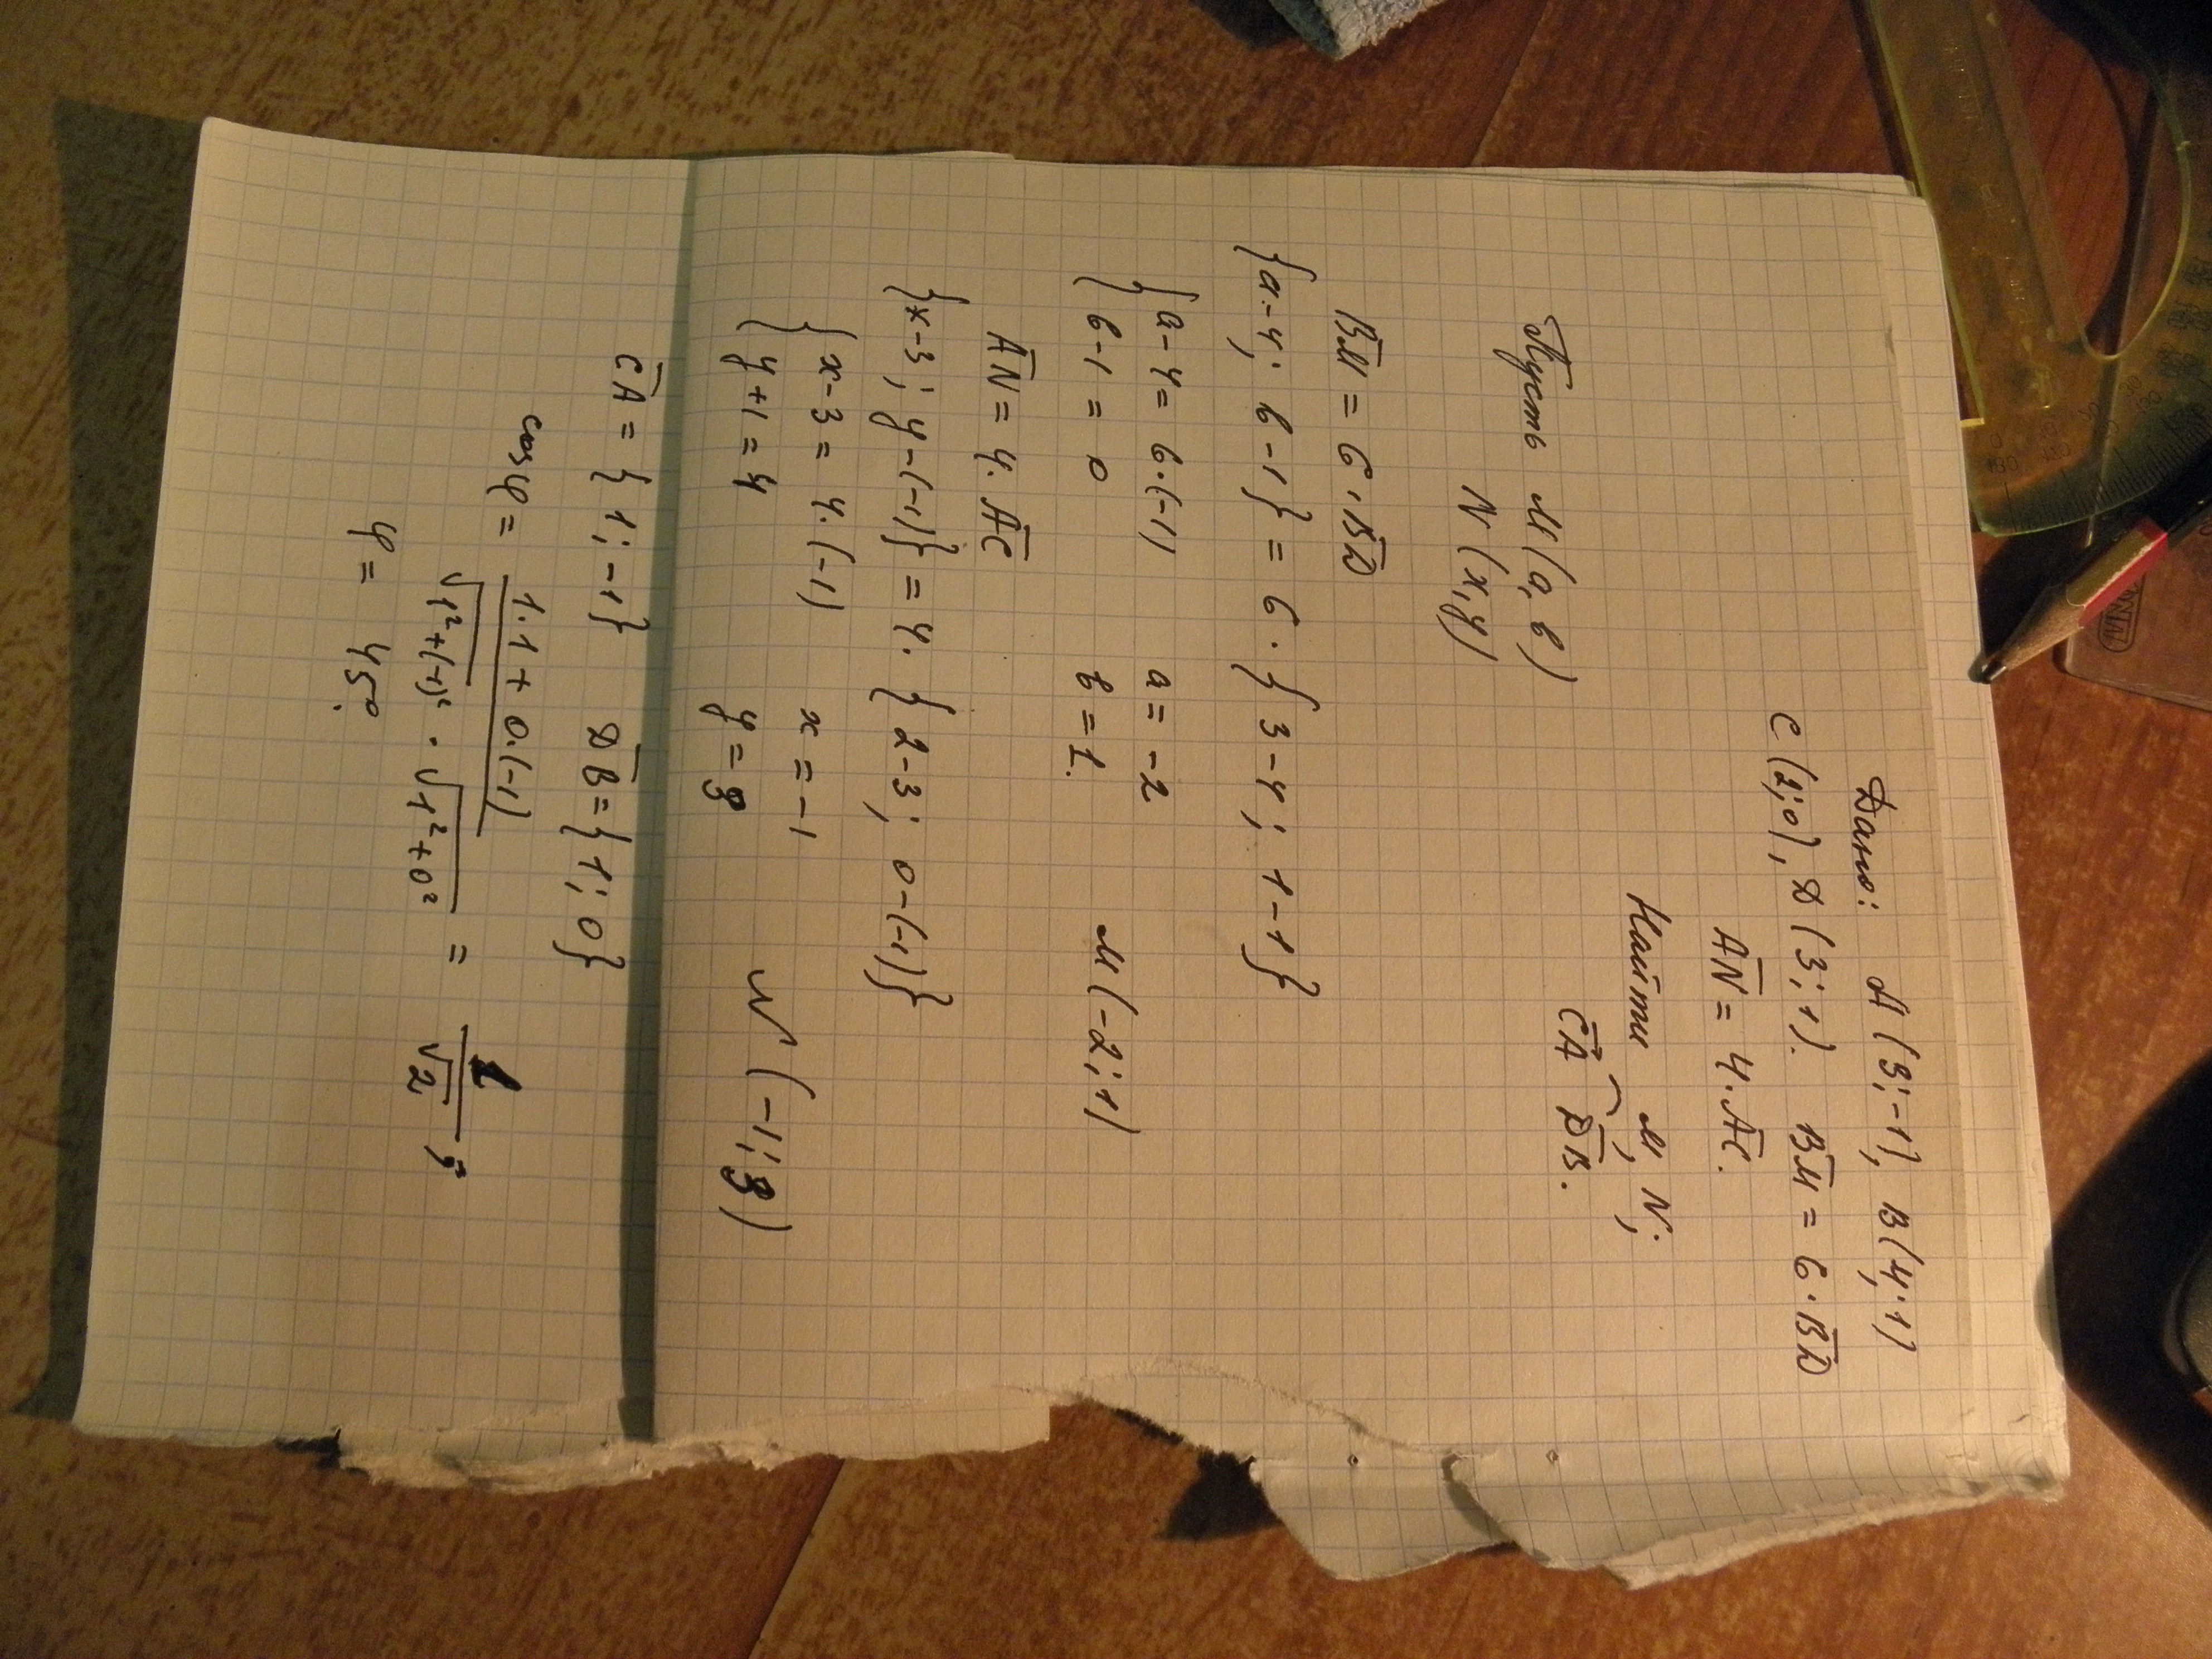 Дано: A (3; -1), B (4; 1)
C (2; 0), D (3; 1). B̅M̅ = 6 · B̅D̅
A̅N̅ = 4 · A̅C̅.
Найти M, N;
C̅A̅ ^ D̅B̅.
Пусть M (a, b)
N (x, y)
B̅M̅ = 6 · B̅D̅
{a - 4; b - 1} = 6 · {3 - 4; 1 - 1}
{ a - 4 = 6 · (-1) a = -2
b - 1 = 0 b = 1. M (-2; 1)
A̅N̅ = 4 · A̅C̅
{x - 3; y - (-1)} = 4 · {2 - 3; 0 - (-1)}
{ x - 3 = 4 · (-1) x = -1
y + 1 = 4 y = 3 N (-1; 3)
C̅A̅ = {1; -1} D̅B̅ = {1; 0}
cos φ = (1·1 + 0·(-1)) / (√(1² + (-1)²) · √(1² + 0²)) = 1/√2 ;
φ = 45°.